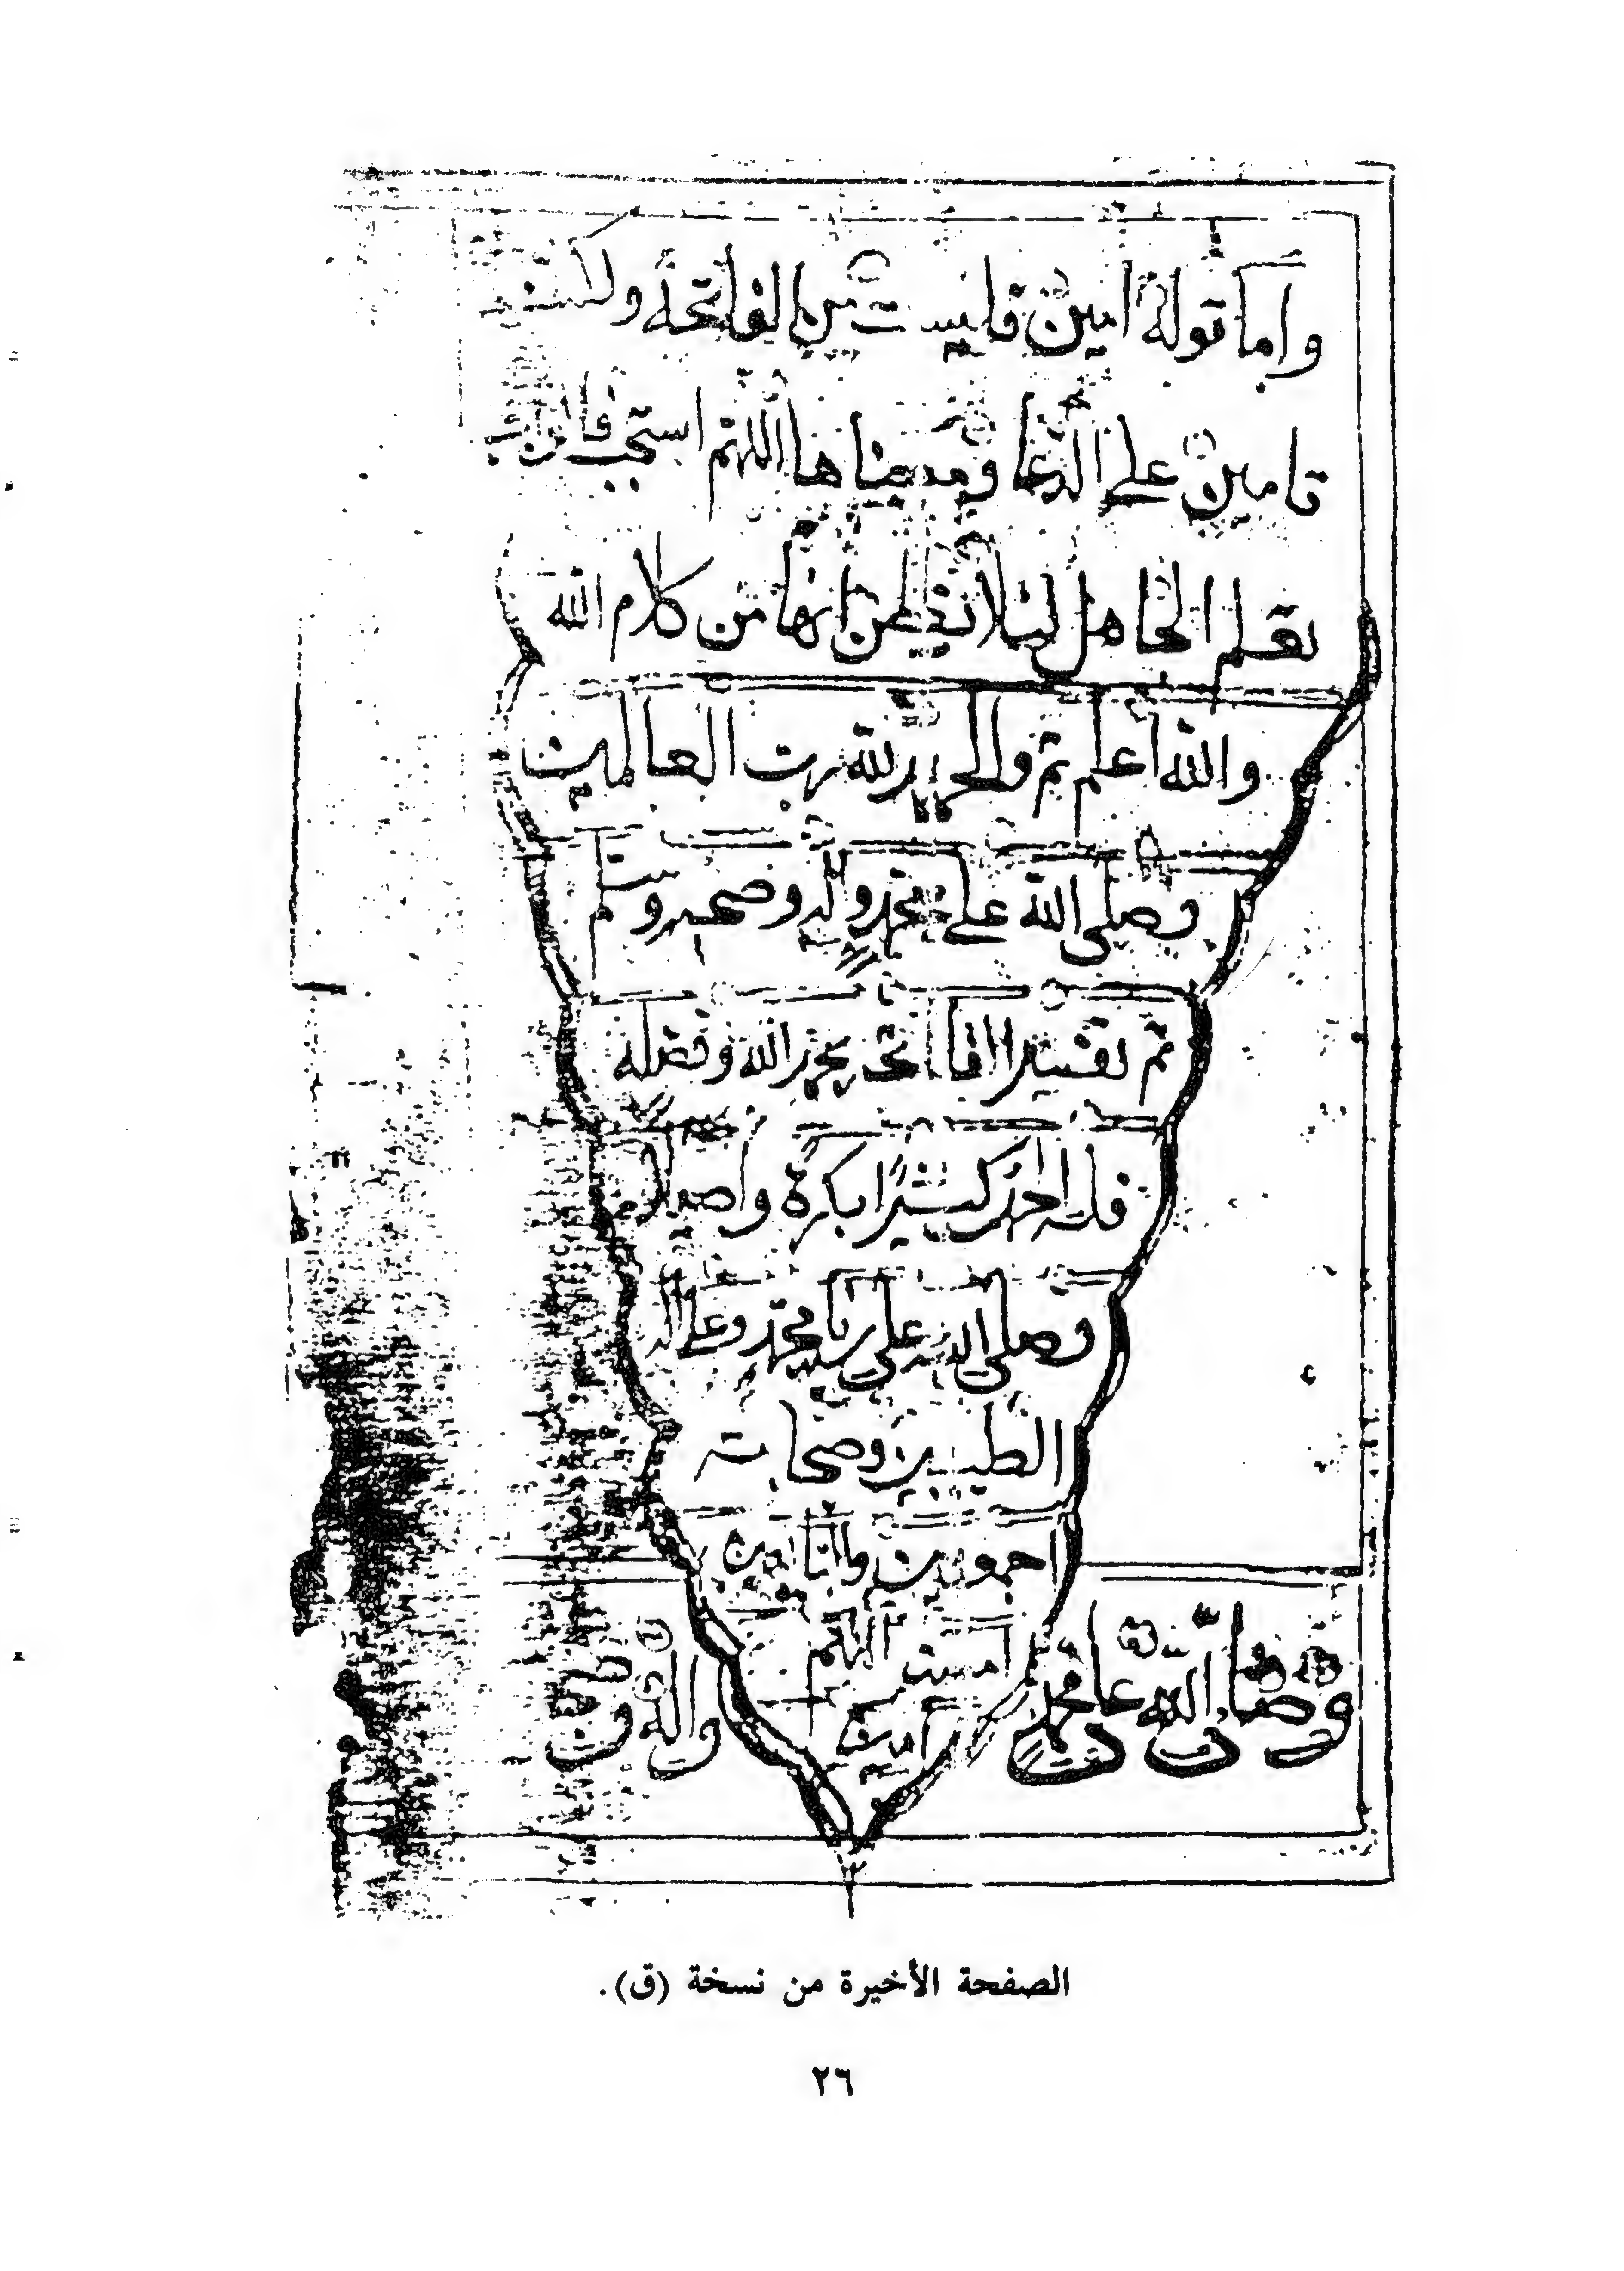 واما قوله امين فليست من الفاتحة ولكنها
تامين على الدعا ومعناها اللهم استجب
تعلم الجاهل ليلا يظن انها من كلام الله
والله أعلم تم والحمد لله رب العالمين
وصلى الله على محمد واله وصحبه وسلم
تم تفسير الفاتحة بحمد الله وفضله
فله الحمد كثيرًا بكرة واصيلا
وصلى الله على سيدنا محمد وعلى اله
الطيبين وصحابته
اجمعين والتابعين
امين اللهم
امين
وصلى الله على محمد
واله
الصفحة الأخيرة من نسخة (ق).
٢٦